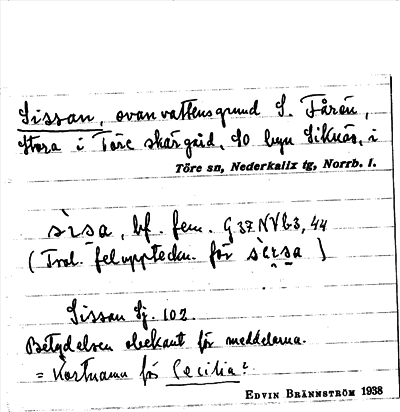 Sissan, ovanvattensgrund S. Fårön,
Stora i Töre skärgård, SO byn Siknäs, i
Töre sn, Nederkalix tg, Norrb. l.
sìsa, bf. fem. G 37 NV b3, 44
(Trol. feluppteckn. för sèsa)
Sissan Sj. 102.
Betydelsen obekant för meddelarna.
= Kortnamn för Cecilia?
EDVIN BRÄNNSTRÖM 1938